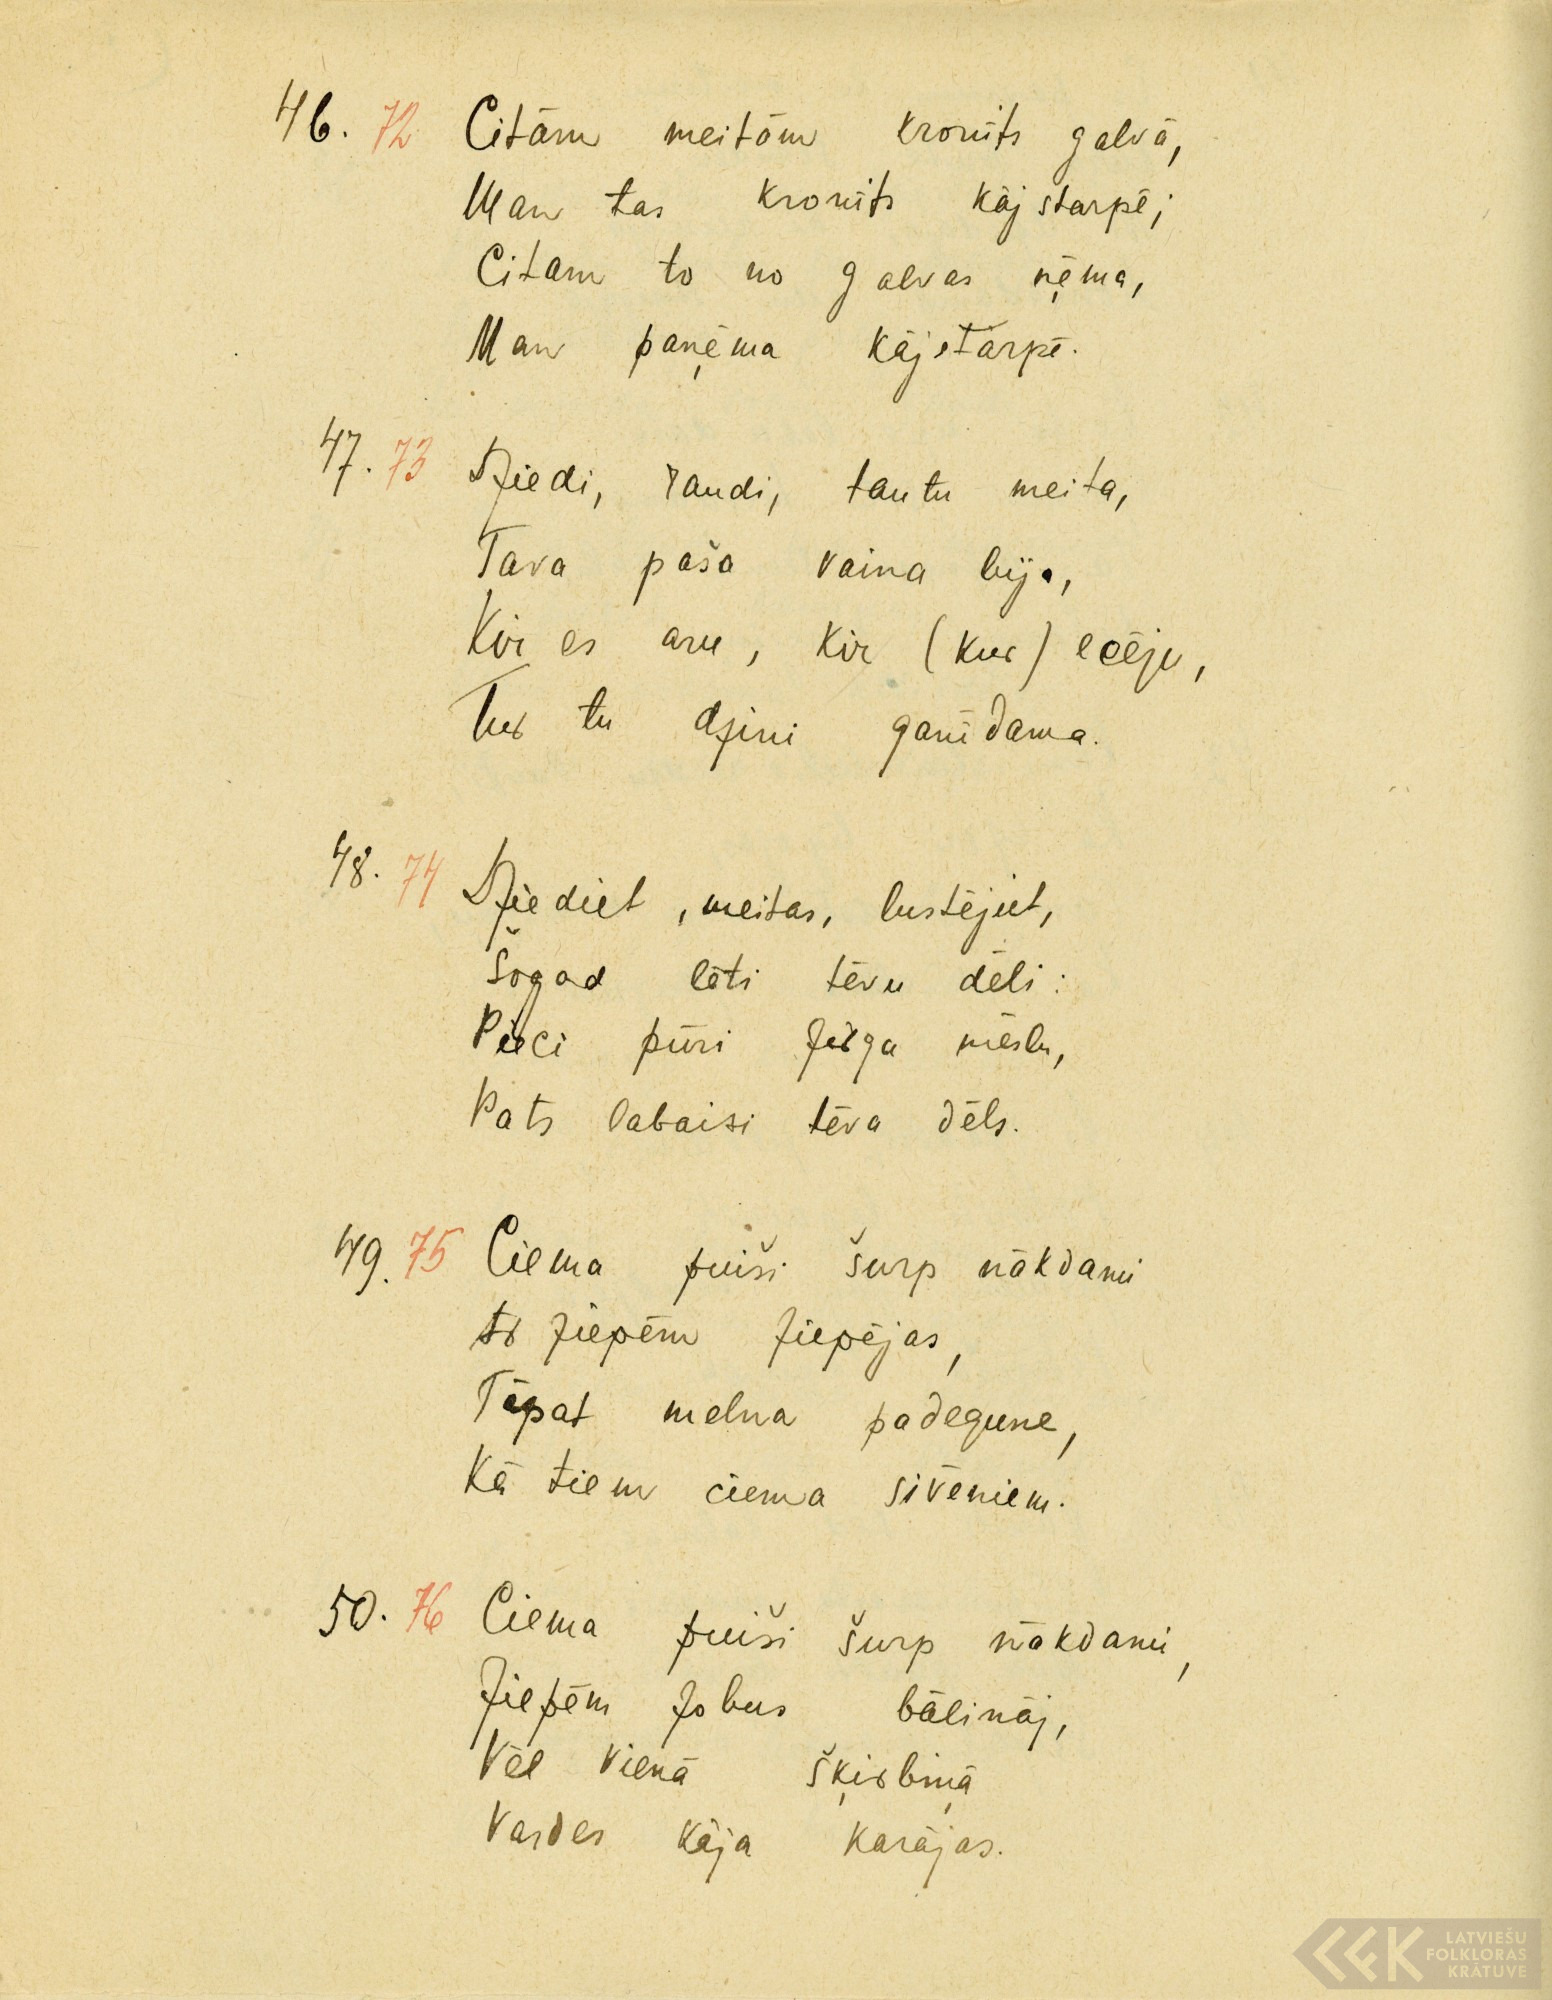 46. 72 Citām meitām kronīts galvā,
Man tas kronīts kājstarpē;
Citam to no galvas ņēma,
Man paņēma kājstarpē.
47. 73 Dziedi, raudi, tautu meita,
Tava paša vaina bija,
Kir es aru, kir (kur) ecēju,
Tur tu dzini ganīdama.
48. 74 Dziediet, meitas, lustējiet,
Šogad lēti tēvu dēli:
Pieci pūri zirga mēslu,
Pats labaisi tēva dēls.
49. 75 Ciema puiši šurp nākdami
Ar ziepēm ziepējas,
Tāpat melna padegune,
Kā tiem ciema sivēniem.
50. 76 Ciema puiši šurp nākdami,
Ziepēm zobus bālināj,
Vēl vienā šķirbiņā
Vardes kāja karājas.
LATVIEŠU
FOLKLORAS
KRĀTUVE